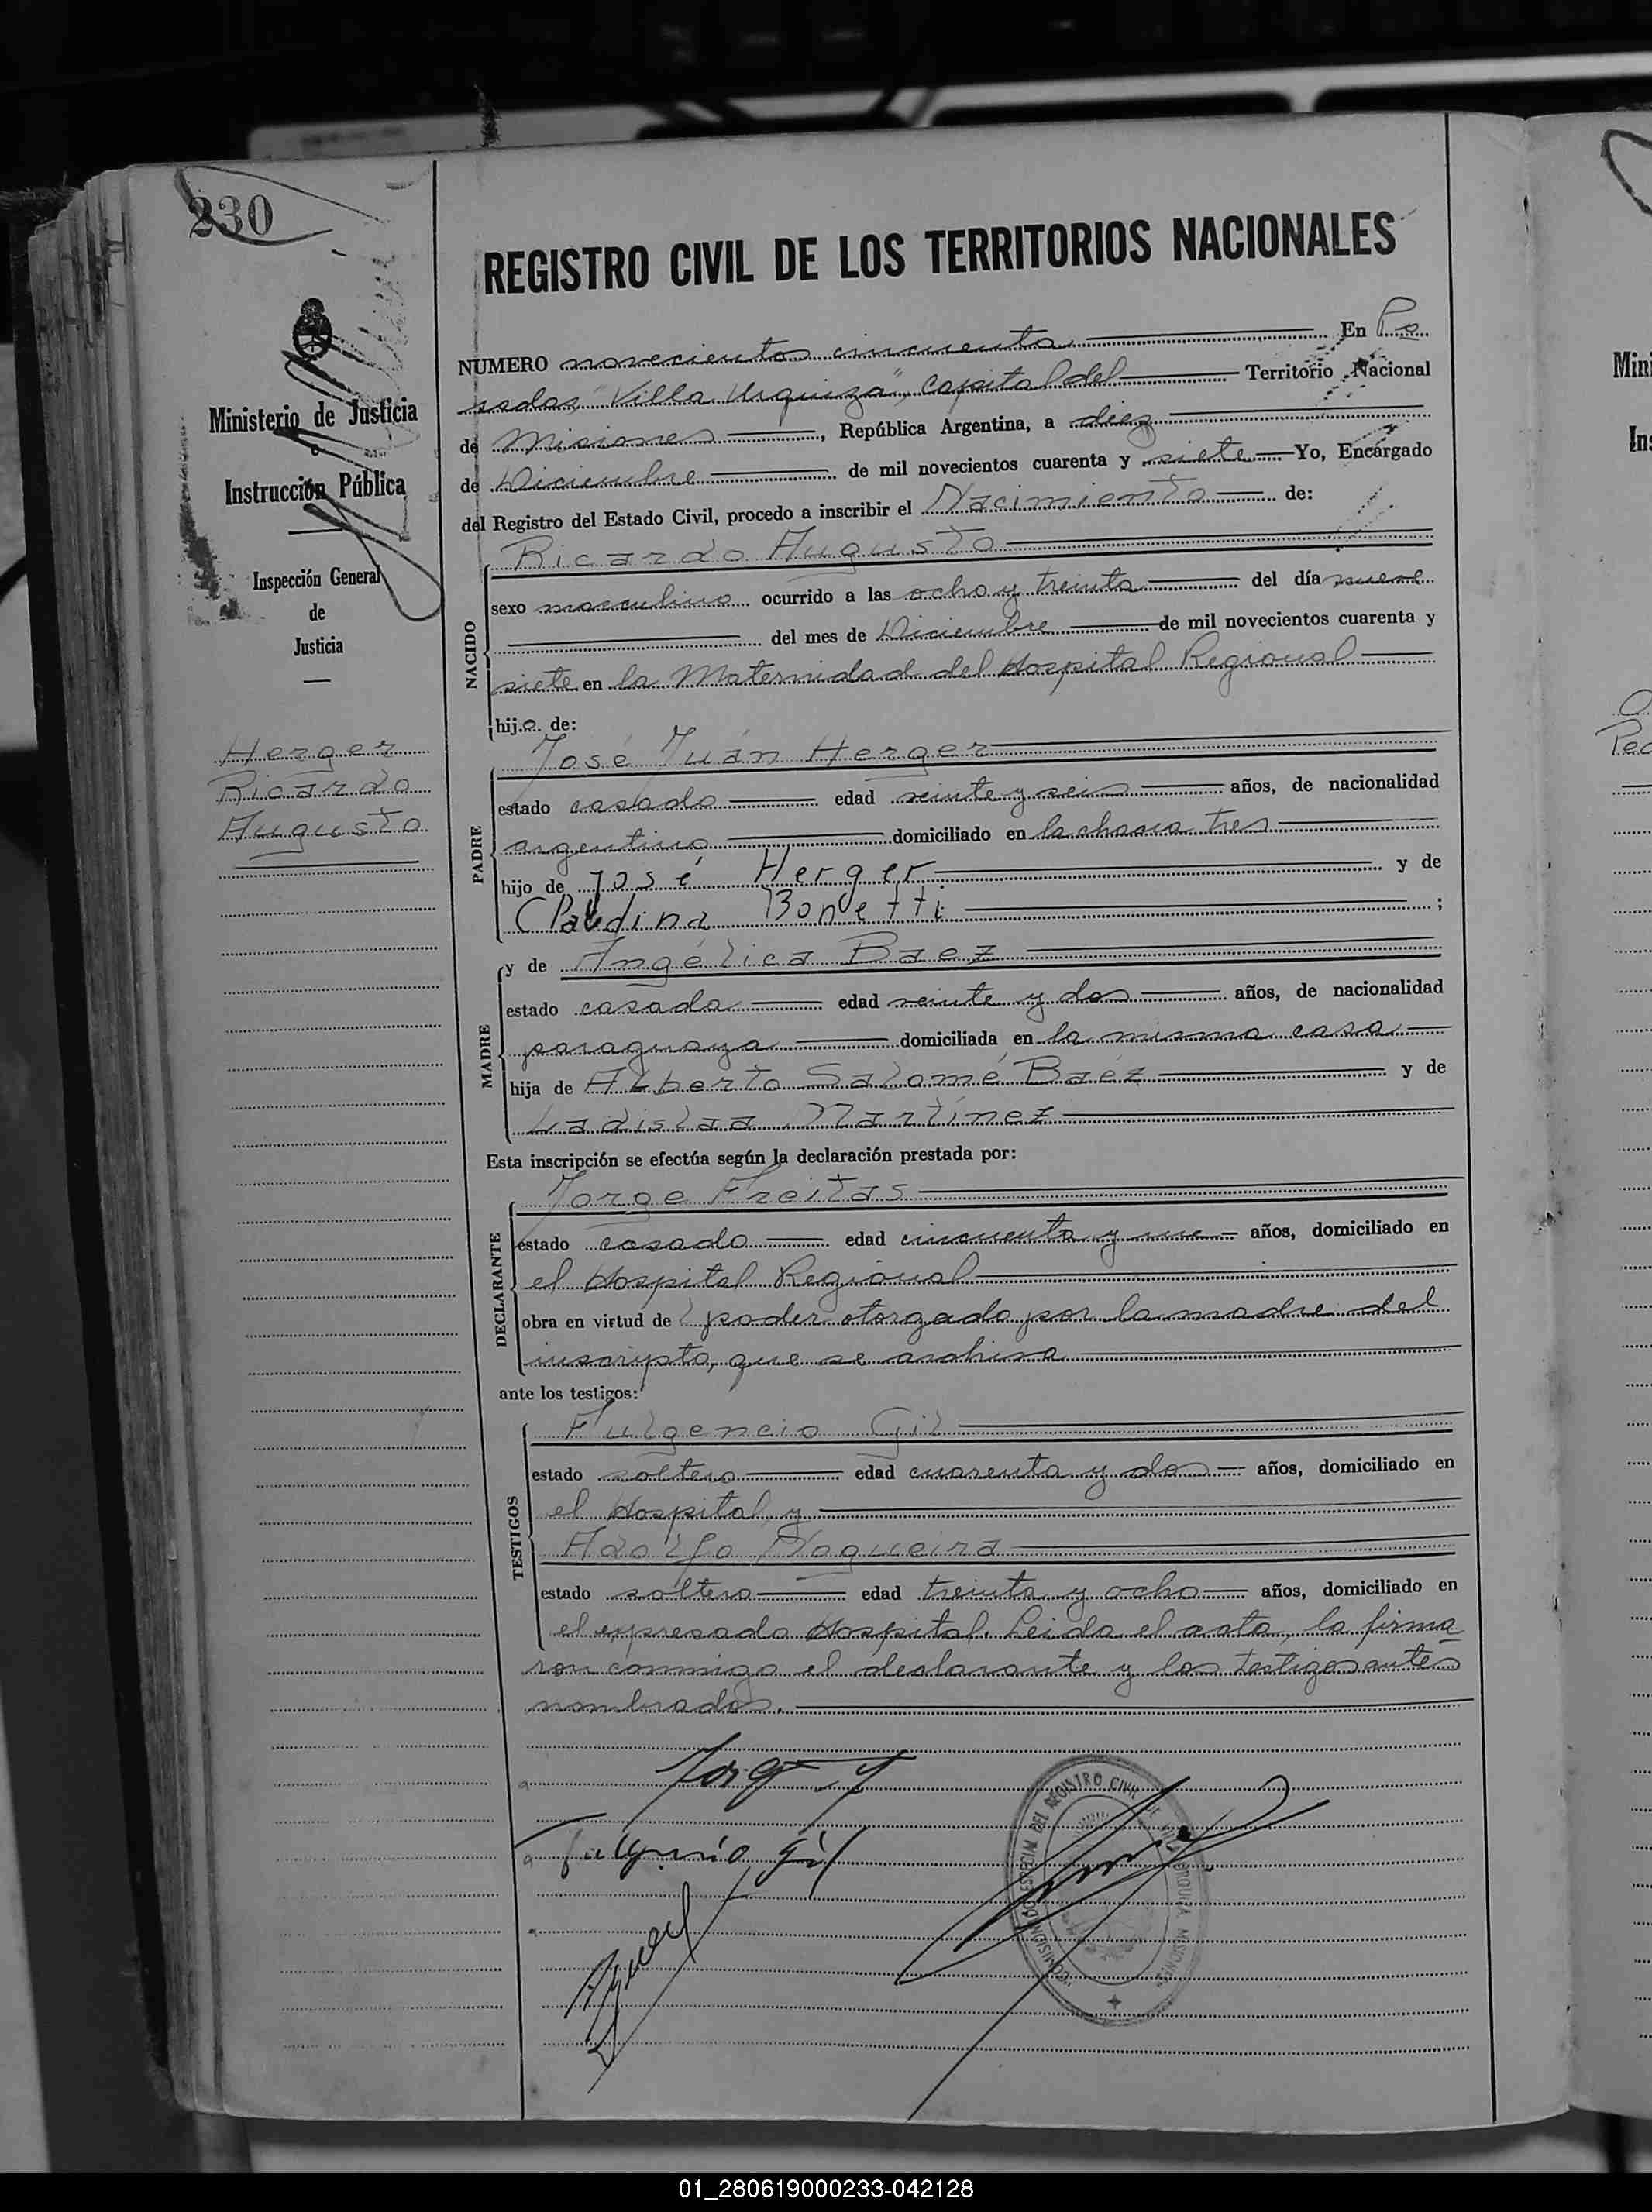 230
REGISTRO CIVIL DE LOS TERRITORIOS NACIONALES
Ministerio de Justicia
e
Instrucción Pública
Inspección General
de
Justicia
Herger
Ricardo
Augusto
NUMERO novecientos cincuenta En Po
sadas, "Villa Urquiza", Capital del Territorio Nacional
de Misiones, República Argentina, a diez
de Diciembre de mil novecientos cuarenta y siete Yo, Encargado
del Registro del Estado Civil, procedo a inscribir el Nacimiento de:
NACIDO
Ricardo Augusto
sexo masculino ocurrido a las ocho y treinta del día nueve
del mes de Diciembre de mil novecientos cuarenta y
siete en la Maternidad del Hospital Regional
hijo de:
PADRE
José Juán Herger
estado casado edad veinte y seis años, de nacionalidad
argentino domiciliado en la chacra tres
hijo de José Herger y de
Claudina Bonetti ;
MADRE
y de Angélica Baez
estado casada edad veinte y dos años, de nacionalidad
paraguaya domiciliada en la misma casa
hija de Alberto Salomé Baéz y de
Ladislaa Martínez
Esta inscripción se efectúa según la declaración prestada por:
DECLARANTE
Jorge Freitas
estado casado edad cincuenta y un años, domiciliado en
el Hospital Regional
obra en virtud de poder otorgado por la madre del
inscripto, que se archiva
ante los testigos:
TESTIGOS
Fulgencio Gil
estado soltero edad cuarenta y dos años, domiciliado en
el Hospital y
Adolfo Nogueira
estado soltero edad treinta y ocho años, domiciliado en
el expresado Hospital. Leida el acta, la firma
ron conmigo el declarante y los testigos antes
nombrados.
Fulgencio Gil
COMISION AD ESPECIAL DEL REGISTRO CIVIL DE VILLA URQUIZA MISIONES
Mini
Ins
01_280619000233-042128